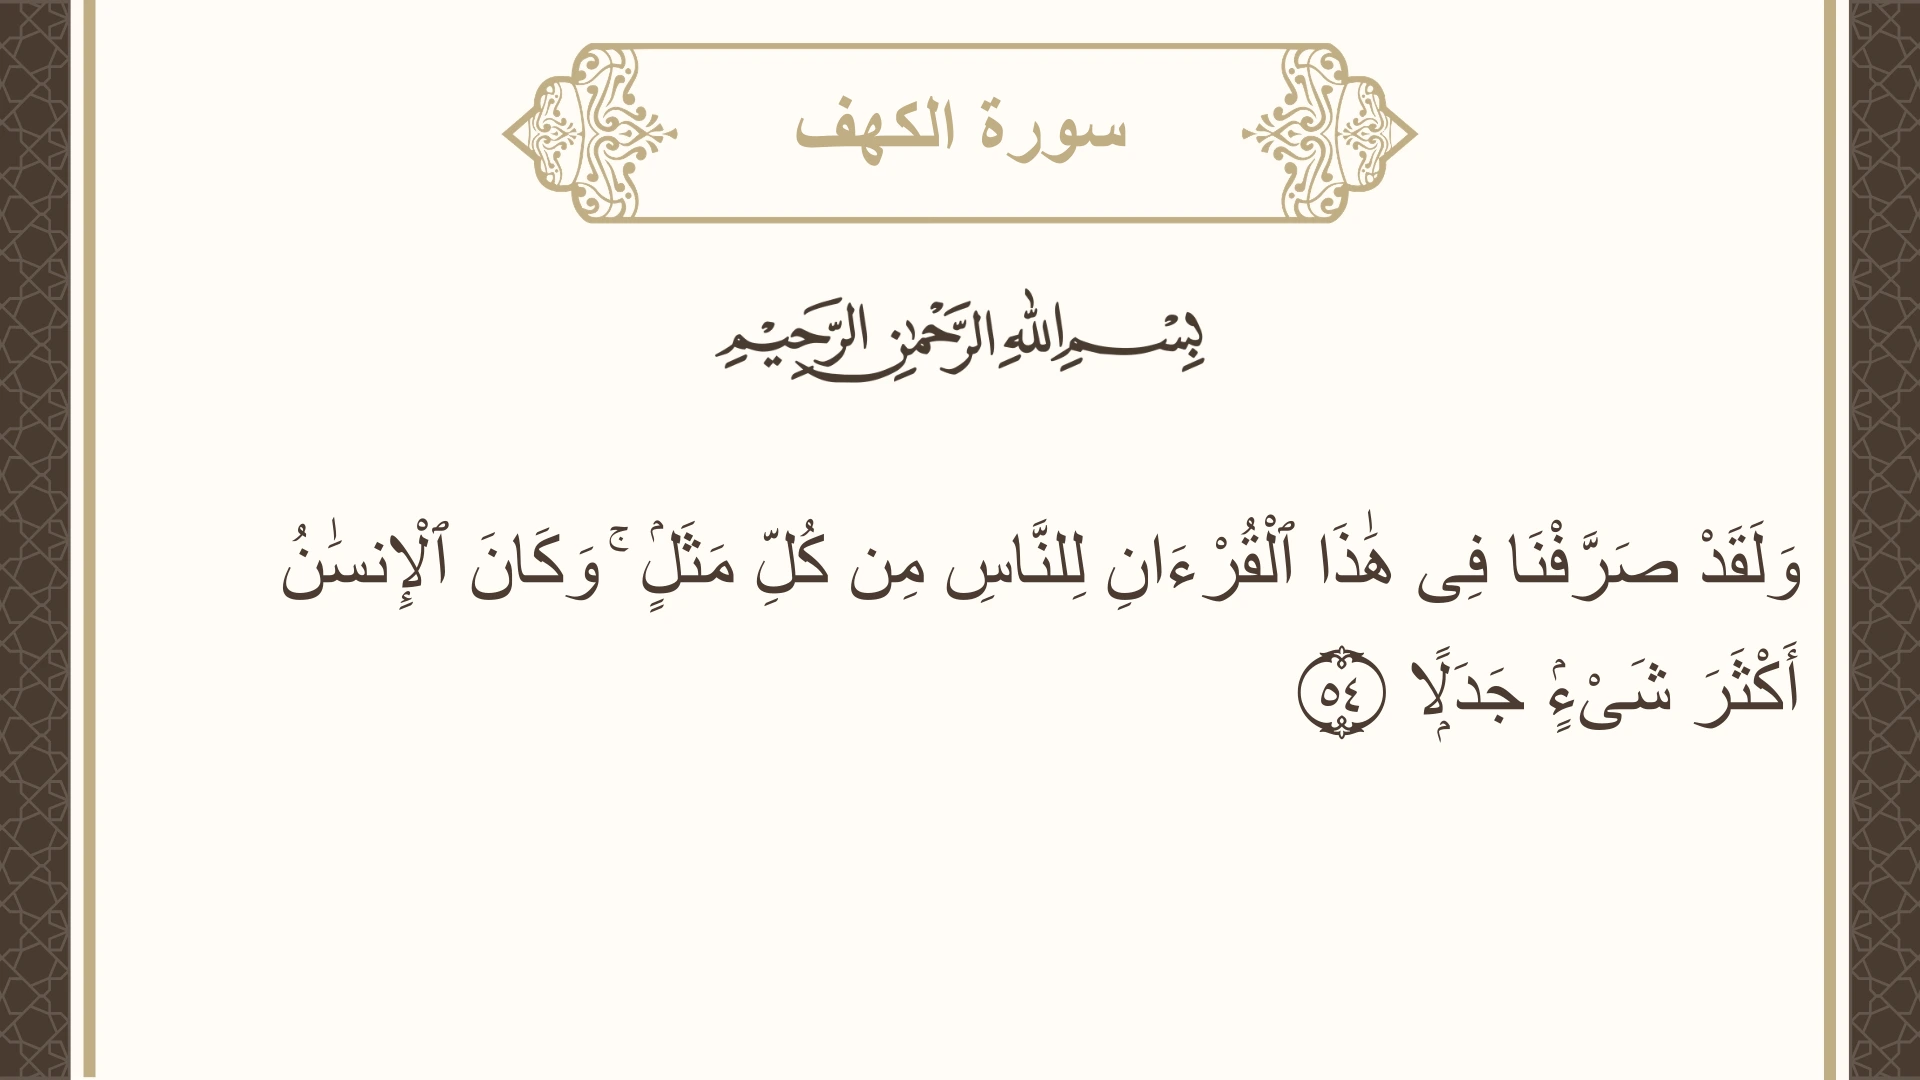 سورة الكهف
بِسْمِ اللهِ الرَّحْمٰنِ الرَّحِيْمِ
وَلَقَدْ صَرَّفْنَا فِى هَٰذَا ٱلْقُرْءَانِ لِلنَّاسِ مِن كُلِّ مَثَلٍۢ ۚ وَكَانَ ٱلْإِنسَٰنُ
أَكْثَرَ شَىْءٍۢ جَدَلًۭا ٥٤